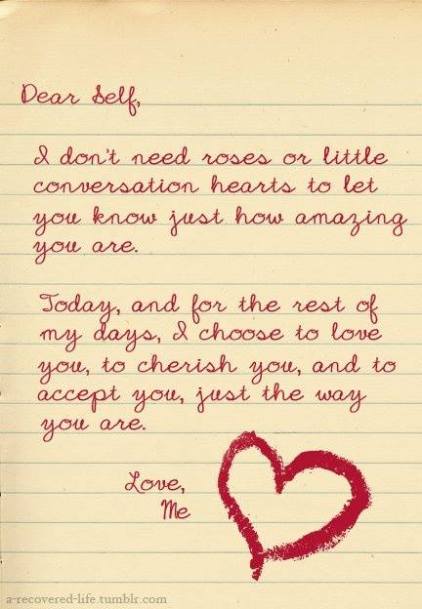 Dear Self,
I don't need roses or little
conversation hearts to let
you know just how amazing
you are.
Today, and for the rest of
my days, I choose to love
you, to cherish you, and to
accept you, just the way
you are.
Love,
Me
a-recovered-life.tumblr.com